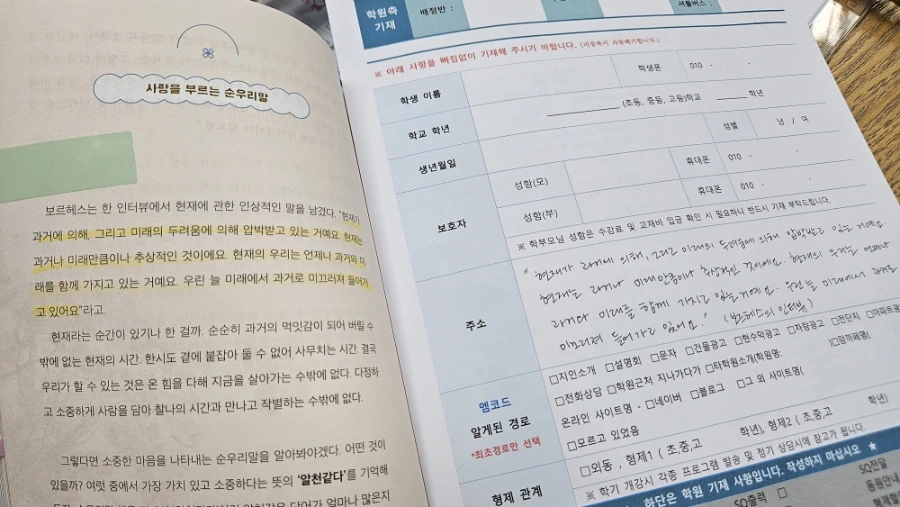 사랑을 부르는 순우리말
보르헤스는 한 인터뷰에서 현재에 관한 인상적인 말을 남겼다. "현재가
과거에 의해, 그리고 미래의 두려움에 의해 압박받고 있는 거예요. 현재는
과거나 미래만큼이나 추상적인 것이에요. 현재의 우리는 언제나 과거와 미
래를 함께 가지고 있는 거예요. 우린 늘 미래에서 과거로 미끄러져 들어가
고 있어요"라고.
현재라는 순간이 있기나 한 걸까. 순순히 과거의 먹잇감이 되어 버릴 수
밖에 없는 현재의 시간. 한시도 곁에 붙잡아 둘 수 없어 사무치는 시간. 결국
우리가 할 수 있는 것은 온 힘을 다해 지금을 살아가는 수밖에 없다. 다정하
고 소중하게 사랑을 담아 찰나의 시간과 만나고 작별하는 수밖에 없다.
그렇다면 소중한 마음을 나타내는 순우리말을 알아봐야겠다. 어떤 것이
있을까? 여럿 중에서 가장 가치 있고 소중하다는 뜻의 '알천같다'를 기억해
학원측
기재
배정반 :
셔틀버스 :
※ 아래 사항을 빠짐없이 기재해 주시기 바랍니다. (미등록시 자동폐기합니다.)
학생 이름
학생폰
010 - -
학교 학년
(초등, 중등, 고등)학교 학년
생년월일
성별
남 / 여
보호자
성함(모)
휴대폰
010 - -
성함(부)
휴대폰
010 - -
※ 학부모님 성함은 수강료 및 교재비 입금 확인 시 필요하니 반드시 기재 부탁드립니다.
주소
"현재가 과거에 의해, 그리고 미래의 두려움에 의해 압박받고 있는 거예요.
현재는 과거나 미래만큼이나 추상적인 것이에요. 현재의 우리는 언제나
과거와 미래를 함께 가지고 있는 거예요. 우린 늘 미래에서 과거로
미끄러져 들어가고 있어요." (보르헤스의 인터뷰)
엠코드
알게된 경로
*최초경로만 선택
□지인소개 □설명회 □문자 □건물광고 □현수막광고 □차량광고 □전단지 □아파트광
□전화상담 □학원근처 지나가다가 □타학원소개(학원명: )□맘까페명(
온라인 사이트명 - □네이버 □블로그 □그 외 사이트명(
□모르고 있었음
형제 관계
□외동 , 형제1 ( 초,중,고 학년), 형제2 ( 초,중,고 학년)
※ 학기 개강시 각종 프로그램 발송 및 정기 상담시에 참고가 됩니다.
하단은 학원 기재 사항입니다. 작성하지 마십시오 ★
SQ출력 □
SQ전달